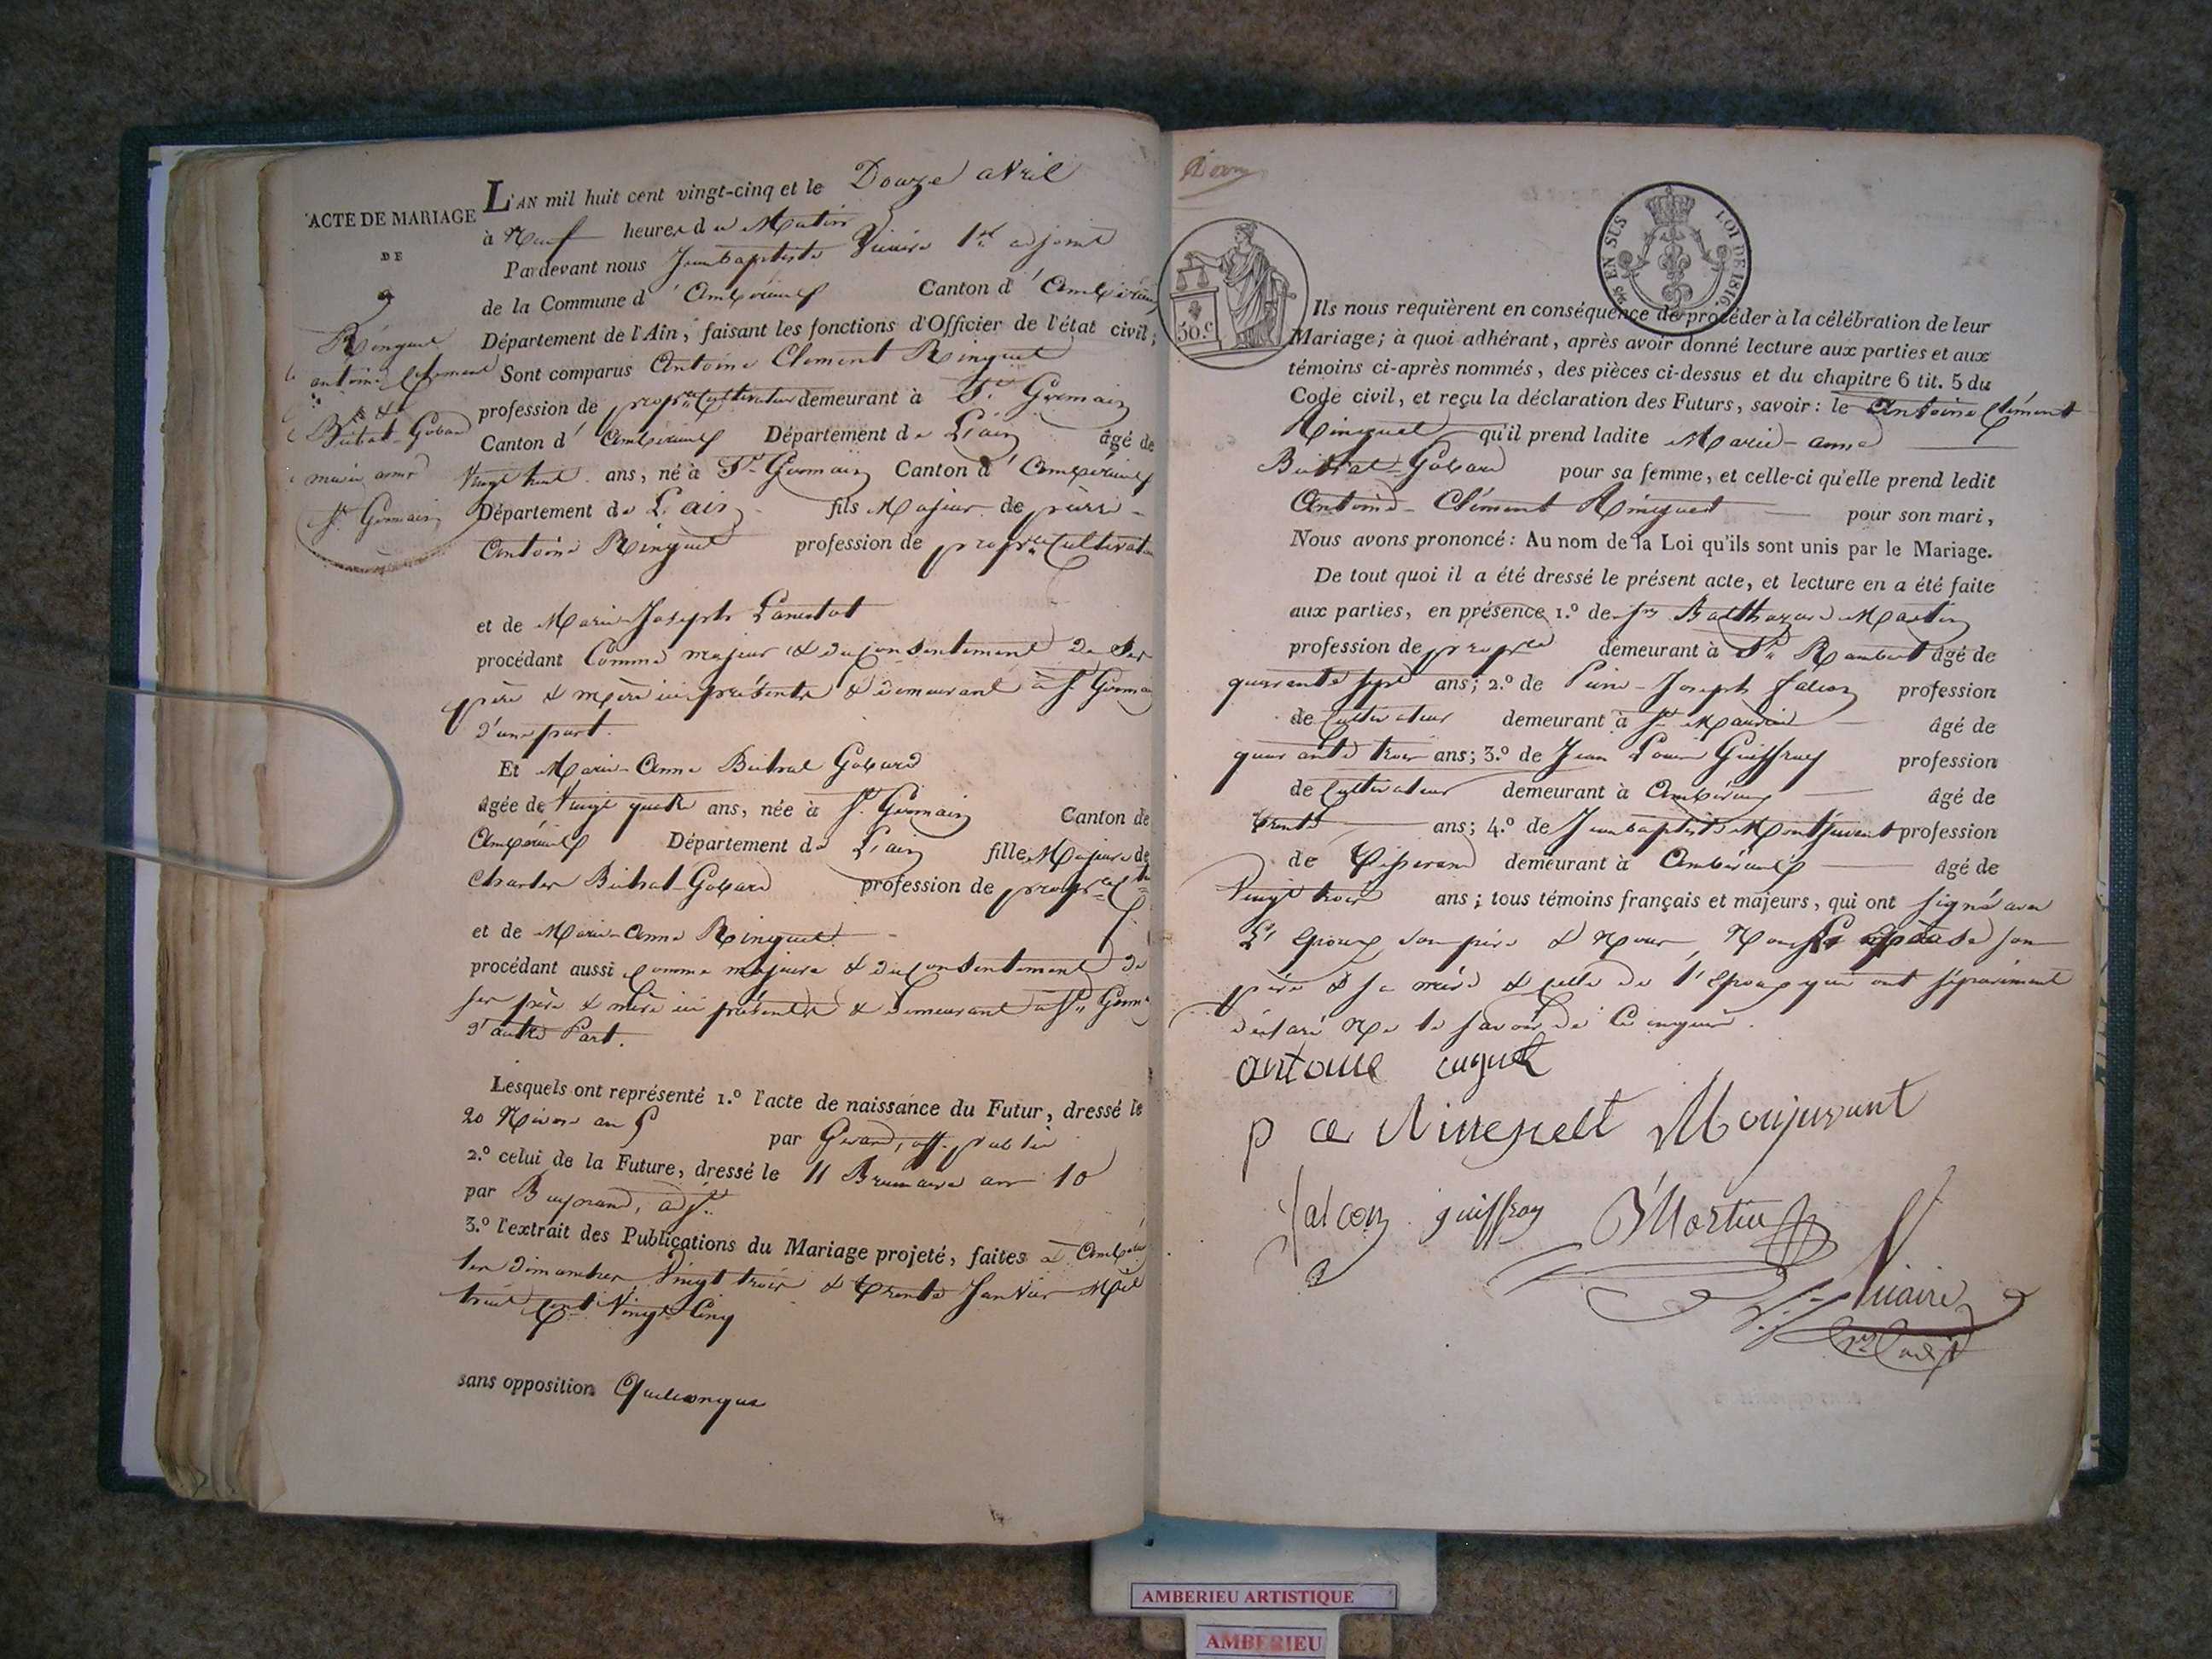 ACTE DE MARIAGE
DE
Ringuet
antoine Clément
&
Butrat-Gobard
marie anne
St. Germain
L'AN mil huit cent vingt-cinq et le Douze avril
à Neuf heures du Matin
Pardevant nous Jean baptiste Vicaire 1er adjoint
de la Commune d'Ambérieux Canton d'Ambérieux
Département de l'Ain, faisant les fonctions d'Officier de l'état civil;
Sont comparus Antoine Clement Ringuet
profession de propre. Cultivateur demeurant à St. Germain
Canton d'Ambérieux Département de L'ain âgé de
Vingt huit ans, né à St. Germain Canton d'Ambérieux
Département de L'ain fils Majeur de pierre-
Antoine Ringuet profession de propre. Cultivateur
et de Marie Joseph
procédant Comme majeur & du consentement de ses
père & mère ici présents & demeurant à St. Germain
d'une part.
Et Marie-Anne Butrat Gobard
âgée de Vingt quatre ans, née à St. Germain Canton de
Ambérieux Département de L'ain fille Majeure de
Charles Butrat-Gobard profession de propre.
et de Marie-Anne Ringuet
procédant aussi Comme majeure & du Consentement de
ses père & mère ici présents & demeurant à St. Germ.
d'autre Part.
Lesquels ont représenté 1.º l'acte de naissance du Futur, dressé le
20 Nivose an 5 par Girard, off. public
2.º celui de la Future, dressé le 11 Brumaire an 10
par adjt.
3.º l'extrait des Publications du Mariage projeté, faites à Ambérieux
les dimanches Vingt trois & trente Janvier Mil
huit Cent Vingt Cinq
sans opposition Quelconque
50.c
EN SUS
LOI DE 1816.
Ils nous requièrent en conséquence de procéder à la célébration de leur
Mariage; à quoi adhérant, après avoir donné lecture aux parties et aux
témoins ci-après nommés, des pièces ci-dessus et du chapitre 6 tit. 5 du
Code civil, et reçu la déclaration des Futurs, savoir: le Antoine Clément
Ringuet qu'il prend ladite Marie-anne
Butrat-Gobard pour sa femme, et celle-ci qu'elle prend ledit
Antoine-Clément Ringuet pour son mari,
Nous avons prononcé: Au nom de la Loi qu'ils sont unis par le Mariage.
De tout quoi il a été dressé le présent acte, et lecture en a été faite
aux parties, en présence 1.º de Balthazard Martin
profession de propre. demeurant à St. Rambert âgé de
quarante sept ans; 2.º de Pierre-Joseph falcoz profession
de Cultivateur demeurant à St. Maurice âgé de
quarante trois ans; 3.º de Jean Louis Guiffray profession
de Cultivateur demeurant à Ambérieux âgé de
trente ans; 4.º de Jean baptiste Montjuvent profession
de tisserand demeurant à Ambérieux âgé de
Vingt trois ans; tous témoins français et majeurs, qui ont signé avec
L'époux son père & Nous, Non l'épouse son
père & sa mère & celle de l'époux qui ont séparément
déclaré Ne le savoir de Ce enquis.
antoine
Monjuvant
falcoz guiffray B Martin
Vicaire
AMBERIEU ARTISTIQUE
AMBERIEU